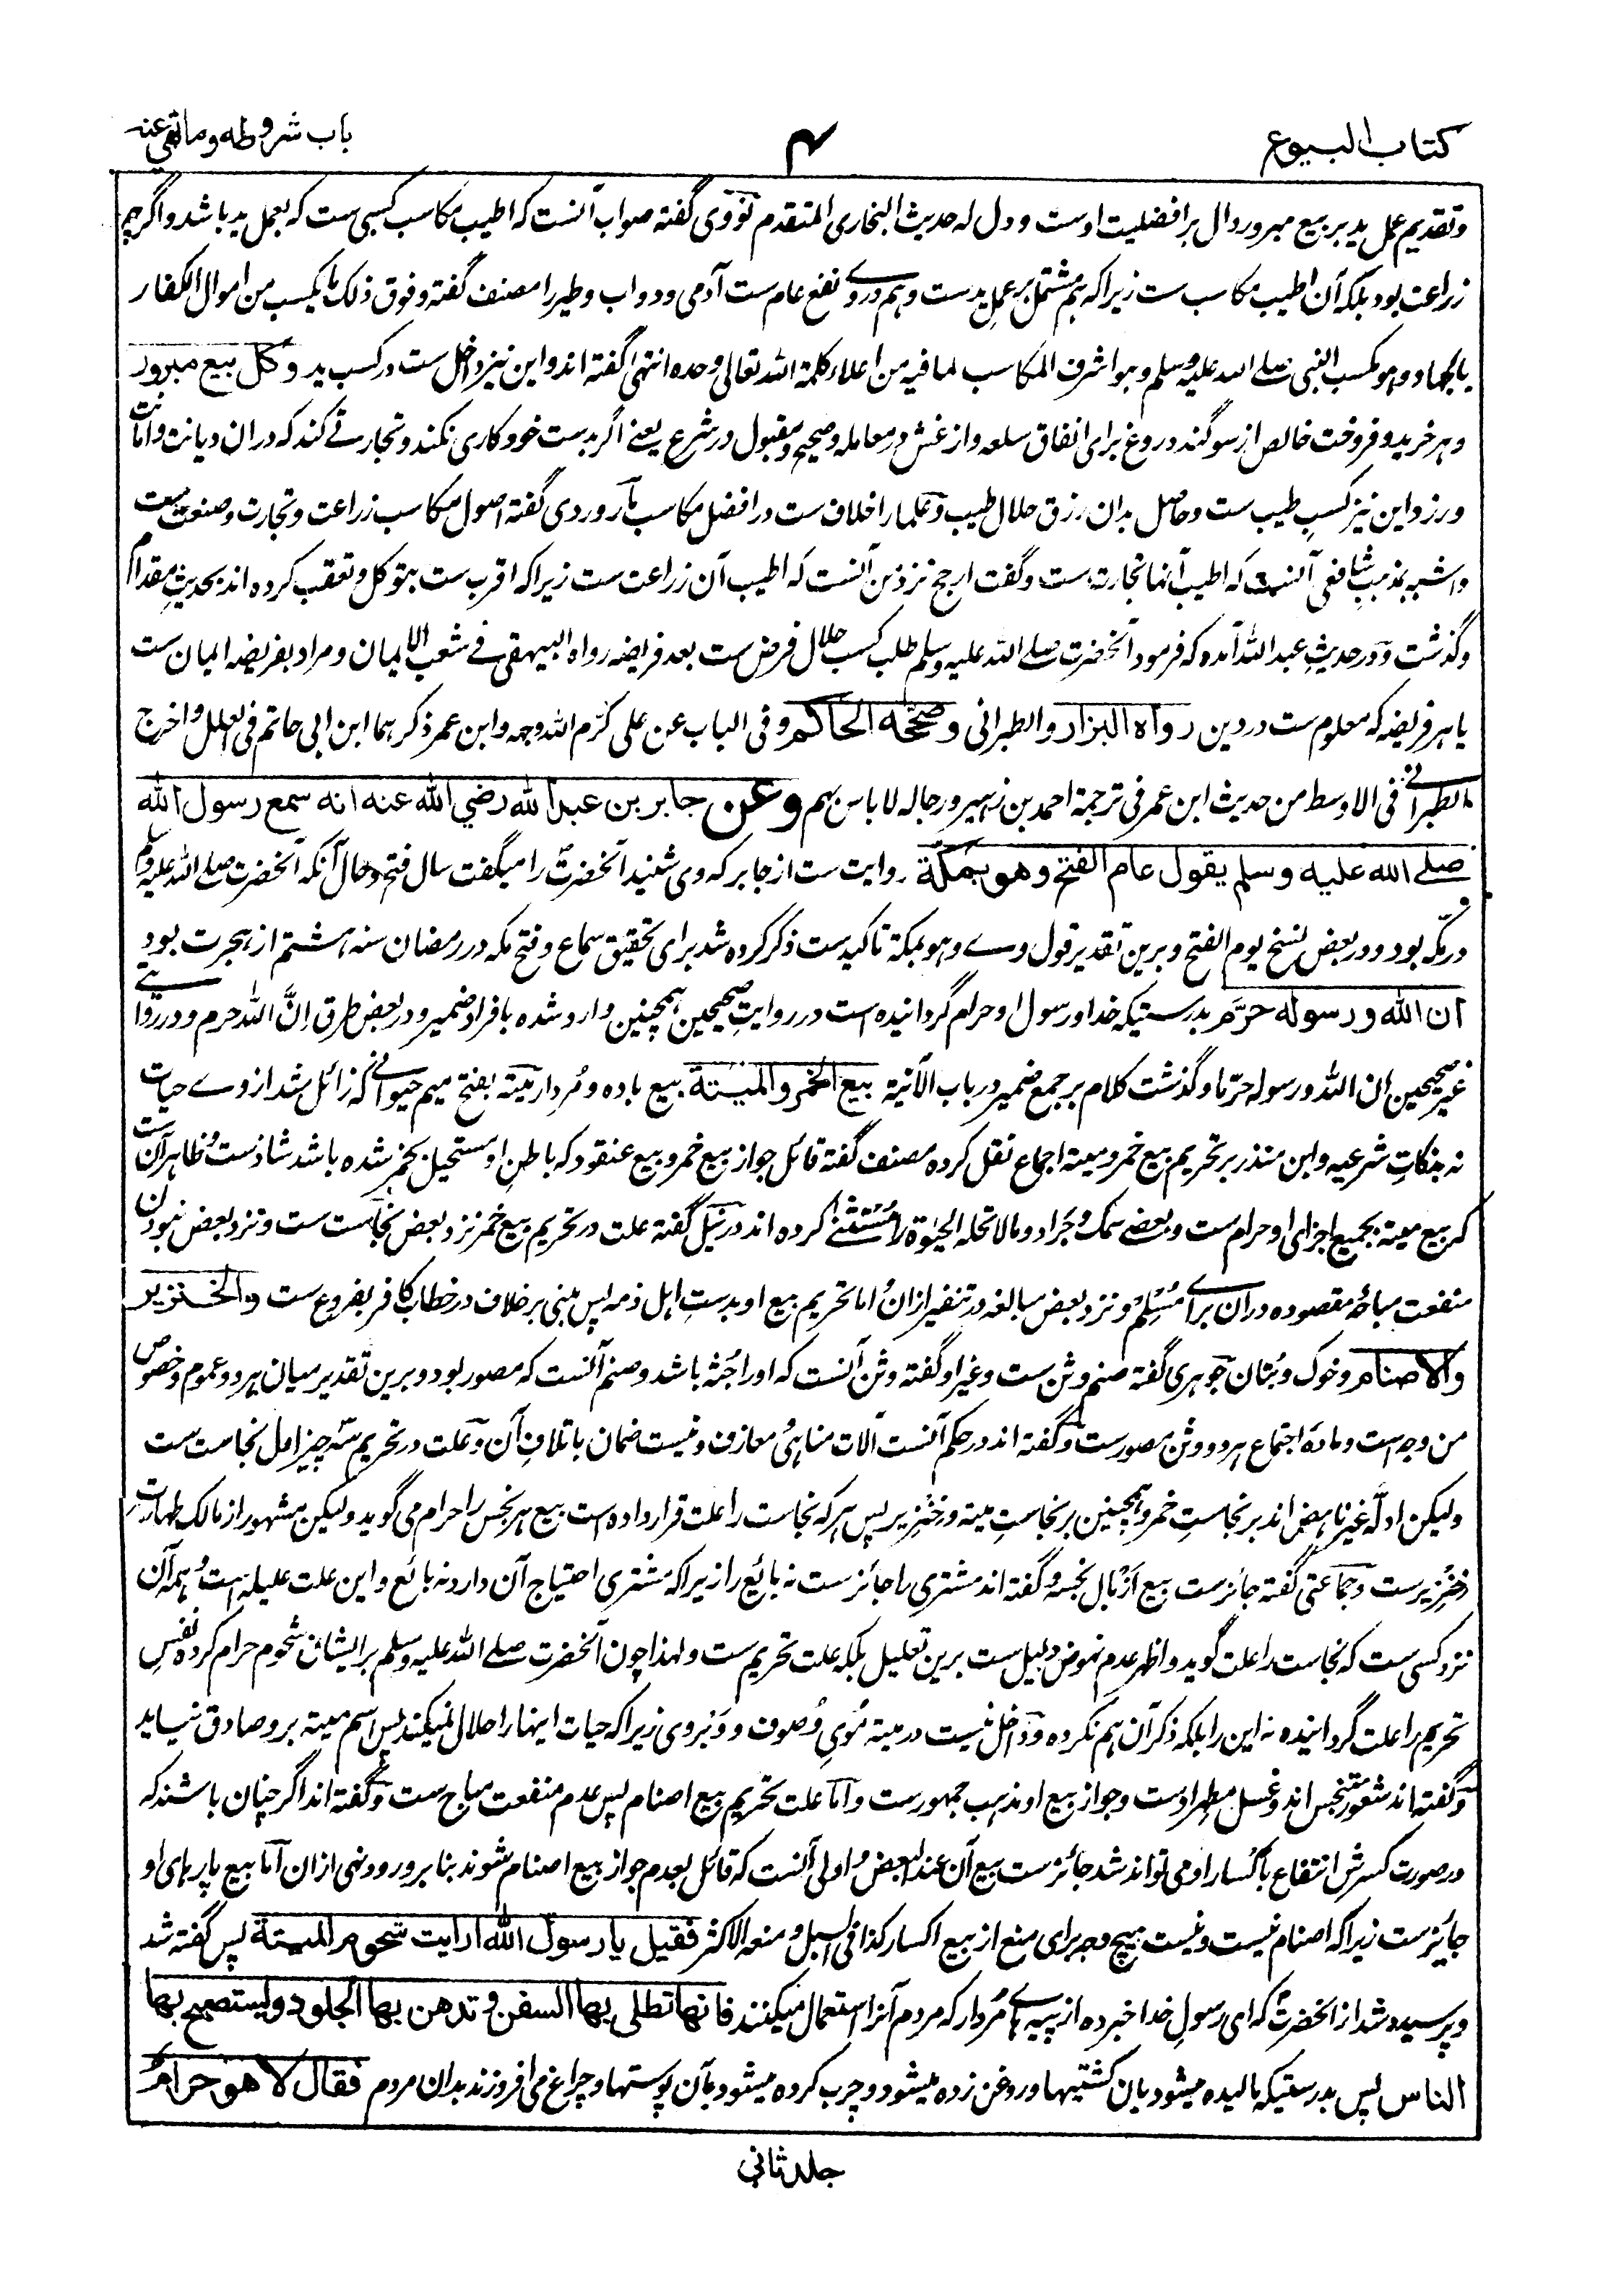 کتاب البیوع
۴
باب شروطه وما نهی عنه
وتقدیم عمل ید بر بیع مبرور دال بر افضلیت اوست و دل له حدیث البخاری المتقدم نووی گفته صواب آنست که اطیب مکاسب کسبی ست که بعمل ید باشد و اگرچه
زراعت بود بلکه آن اطیب مکاسب ست زیرا که هم مشتمل بر عمل ید ست و هم در وے نفع عام ست آدمی و دواب و طیر را مصنف گفته و فوق ذلک ما یکسب من اموال الکفار
بالجهاد و هو کسب النبی صلے الله علیه وسلم و هو اشرف المکاسب لما فیه من اعلاء کلمة الله تعالی وحده انتهی گفته اند و این نیز داخل ست در کسب ید وکل بیع مبرور
و هر خرید و فروخت خالص از سوگند دروغ برای انفاق سلعه و از غش در معامله و صحیح و مقبول در شرع یعنے اگر بدست خود کاری نکند و تجارتے کند که دران دیانت و امانت
ورزد این نیز کسب طیب ست و حاصل بدان رزق حلال طیب و علما را خلاف ست در افضل مکاسب ماوردی گفته اصول مکاسب زراعت و تجارت و صنعت ست
و اشبه بمذهب شافعی آنست که اطیب آنها تجارت ست و گفت ارجح نزد من آنست که اطیب آن زراعت ست زیرا که اقرب ست بتوکل و تعقب کرده اند بحدیث مقدام
و گذشت و در حدیث عبد الله آمده که فرمود آنحضرت صلے الله علیه وسلم طلب کسب حلال فرض ست بعد فریضه رواه البیهقی فے شعب الایمان و مراد بفریضه ایمان ست
یا هر فریضه که معلوم ست در دین رواه البزار والطبرانی وصححه الحاکم و فی الباب عن علی کرّم الله وجهه و ابن عمر ذکرهما ابن ابی حاتم فی العلل و اخرج
الطبرانے فی الاوسط من حدیث ابن عمر فی ترجمة احمد بن زهیر و رجاله لا باس بهم وعن جابر بن عبد الله رضي الله عنه انه سمع رسول الله
صلے الله علیه وسلم یقول عام الفتح وهو بمکة روایت ست از جابر که وی شنید آنحضرت را میگفت سال فتح و حال آنکه آنحضرت صلے الله علیه وسلم
در مکه بود و در بعض نسخ یوم الفتح و برین تقدیر قول وے وهو بمکة تاکید ست ذکر کرده شد برای تحقیق سماع و فتح مکه در رمضان سنه هشتم از هجرت بود
ان الله ورسوله حرّم بدرستیکه خدا و رسول او حرام گردانیده است در روایت صحیحین همچنین وارد شده بافراد ضمیر و در بعض طرق اِنَّ الله حرم و در روایتے
غیر صحیحین ان الله ورسوله حرّما و گذشت کلام بر جمع ضمیر در باب الآنیة بیع الخمر والمیتة بیع باده و مُردار میته بفتح میم حیوانے که زائل شد از وے حیات
نه بذکات شرعیه و ابن منذر بر تحریم بیع خمر و میته اجماع نقل کرده مصنف گفته قائل جواز بیع خمر و بیع عنقود که باطن او مستحیل بخمر شده باشد شاذ ست و ظاهر آن ست
که بیع میته بجمیع اجزای او حرام ست و بعضے سمک و جَراد و مالا تحله الحیٰوة را مُستثنے کرده اند در نیل گفته علت در تحریم بیع خمر نزد بعض نجاست ست و نزد بعض نبودن
منفعت مباحهٔ مقصوده دران براے مُسلِم و نزد بعض مبالغه در تنفیر ازان اما تحریم بیع او بدست اهل ذمه پس مبنی بر خلاف در خطاب کافر بفروع ست والخنزیر
والاصنام و خوک و بُتان جوهری گفته صنم وثن ست و غیر او گفته وثن آنست که او را جُثه باشد و صنم آنست که مصور بود و برین تقدیر میان هر دو عموم و خصوص
من وجه است و مادهٔ اجتماع هر دو وثن مصور ست و گفته اند در حکم آنست آلات مناهی و معازف و نیست ضمان باتلاف آن و علت در تحریم سه چیز اول نجاست ست
ولیکن ادلّه غیر ناهض اند بر نجاست خمر و همچنین بر نجاست میته و خنزیر پس هر که نجاست را علت قرار داده است بیع هر نجس را حرام می گوید ولیکن مشهور از مالک طهارت
خنزیر ست و جماعتی گفته جائز ست بیع ازبال نجسه و گفته اند مشتری را جائز ست نه بائع را زیرا که مشتری احتیاج آن دارد نه بائع و این علت علیله است و همه آن
نزد کسی ست که نجاست را علت گوید و اظهر عدم نهوض دلیل ست برین تعلیل بلکه علت تحریم ست و لهذا چون آنحضرت صلے الله علیه وسلم بر ایشان شحوم حرام کرده نفس
تحریم را علت گردانیده نه این را بلکه ذکر آن هم نکرده و داخل نیست در میته مُوی و صوف و وَبر وی زیرا که حیات اینها را حلال نمیکند پس اسم میته برو صادق نیاید
و گفته اند شعور متنجس اند و غسل مطهر اوست و جواز بیع او مذهب جمهور ست و اما علت تحریم بیع اصنام پس عدم منفعت مباح ست و گفته اند اگر چنان باشند که
در صورت کسرش انتفاع باکسار او می تواند شد جائز ست بیع آن عند البعض و اولی آنست که قائل بعدم جواز بیع اصنام شوند بنا بر ورود نهی ازان اما بیع پارهای او
جائز ست زیرا که اصنام نیست و نیست هیچ وجه برای منع از بیع اکسار کذا فی السبل و منعه الاکثر فقیل یا رسول الله ارایت شحوم المیتة پس گفته شد
و پرسیده شد از آنحضرت که ای رسول خدا خبر ده از پیہے ہاے مُردار که مردم آنرا استعمال میکنند فانها تطلی بها السفن وتدهن بها الجلود ولیستصبح بها
الناس پس بدرستیکه مالیده میشود بان کشتیها و روغن زده میشود و چرب کرده میشود بآن پوستها و چراغ می افروزند بدان مردم فقال لا هو حرامٌ
جلد ثانی